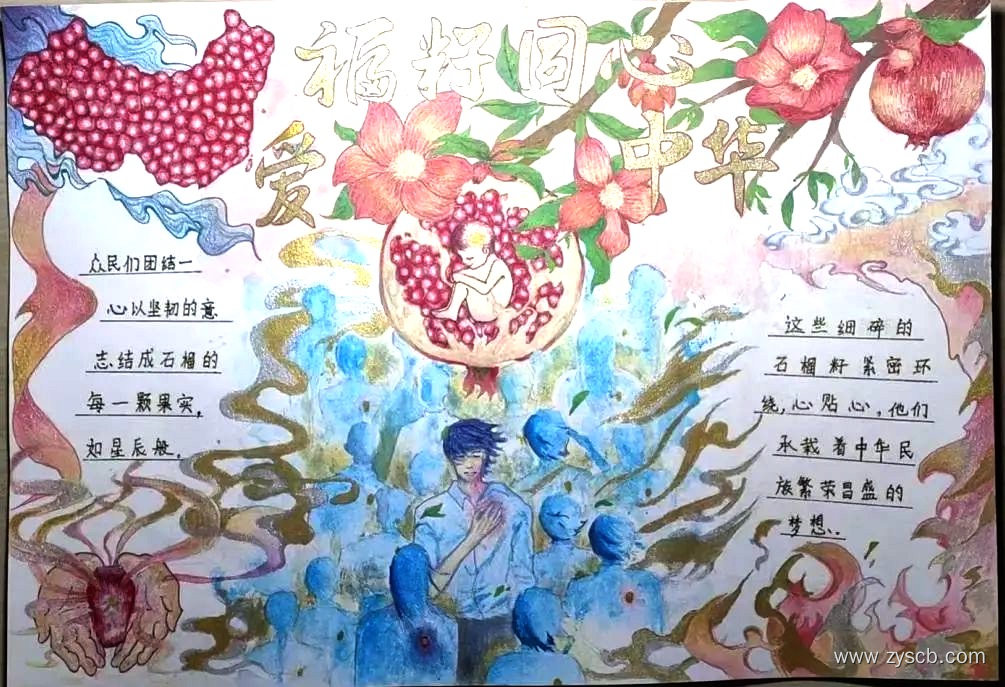 福籽同心
爱中华
众民们团结一
心以坚韧的意
志结成石榴的
每一颗果实,
如星辰般.
这些细碎的
石榴籽紧密环
绕,心贴心,他们
承载着中华民
族繁荣昌盛的
梦想..
www.zyscb.com